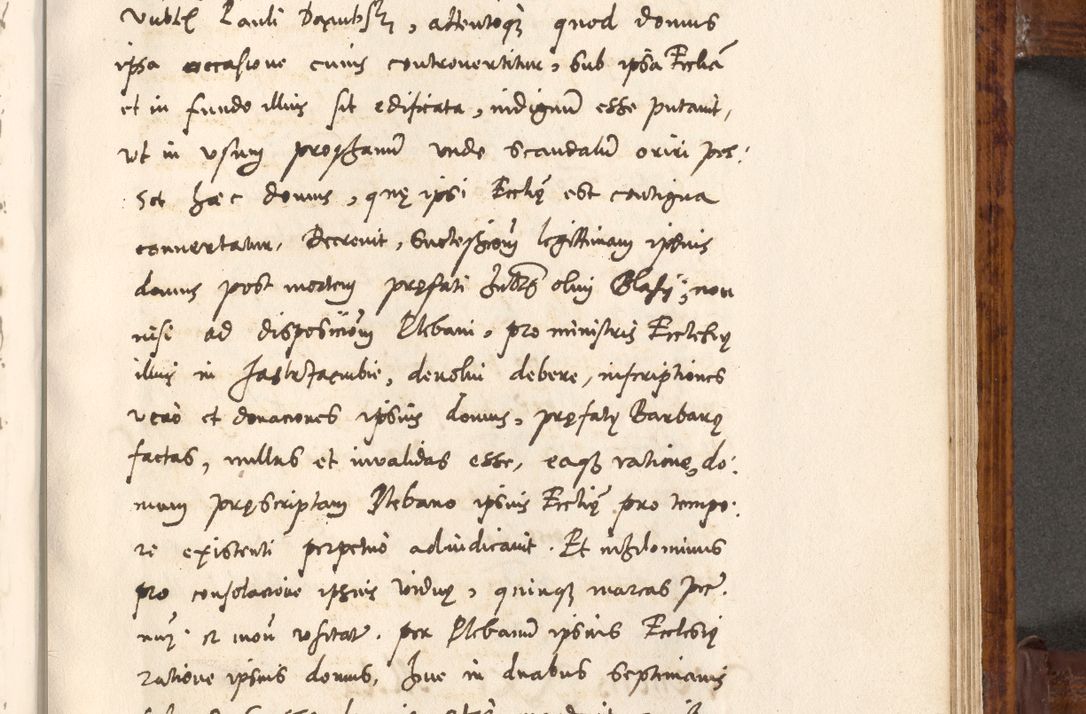 Pauli attentoq₃ quod domus
ipsa occasione cuius controuertitur, sub ipsa Eccliã
et in fundo illius sit edificata, indignum esse putauit,
vt in vsum prophanũ unde scandalũ oriri pos:
set hæc domus, quę ipsi Ecclię est contigua
conuertatur, Decreuit, successionẽ legittimam ipsius
domus post mortem pręfati olim Blasij, non
nisi ad disposiciõm Plebani, pro ministris Ecclesię
illius in deuolui debere, inscriptiones
vero et donaciones ipsius domus, pręfatę Barbarę
factas, nullas et inualidas esse, eaq₃ ratione, do:
mum pręscriptam Plebano ipsius Ecclię pro tempo:
re existenti perpetuo adiudicauit. Et nihilominus
pro consolacione ipsius viduę, quinq₃ marcas pec:
nuę: et mon vsitatę. per Plebanũ ipsius Ecclesię
ratione ipsius domus, hine in duabus septimanis